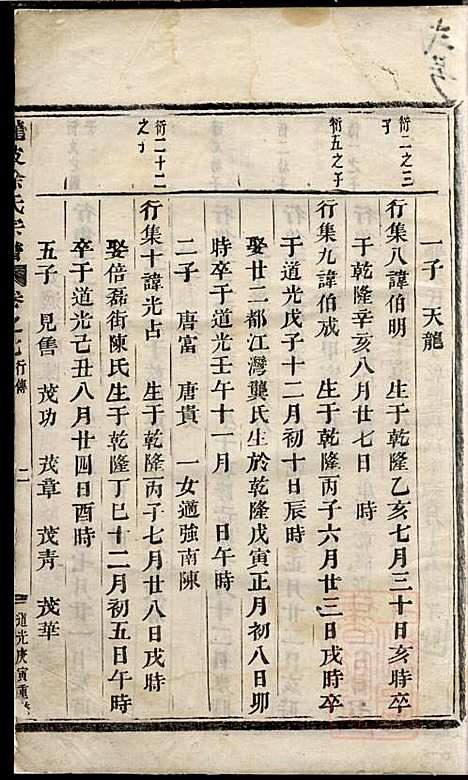 一子 天龍
衍二之三子
行集八諱伯明 生于乾隆乙亥七月三十日亥時卒
于乾隆辛亥八月廿七日 時
衍五之子
行集九諱伯成 生于乾隆丙子六月廿三日戌時卒
于道光戊子十二月初十日辰時
娶廿二都江灣龔氏生於乾隆戊寅正月初八日卯
時卒于道光壬午十一月 日午時
二子 唐富 唐貴 一女適強南陳
衍二十二之子
行集十諱光占 生于乾隆丙子七月廿八日戌時
娶倍磊街陳氏生于乾隆丁巳十二月初五日午時
卒于道光己丑八月廿四日酉時
五子 見雋 茂功 茂章 茂青 茂華
徐氏宗譜 卷之七 行傳 二 道光庚寅重修